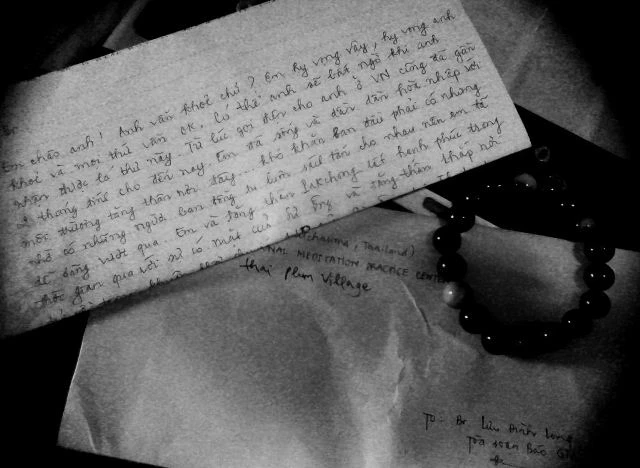 Br.
Em chào anh! Anh vẫn khoẻ chứ? Em hy vọng vậy, hy vọng anh
khoẻ và mọi thứ vẫn ok. Có thể anh sẽ bất ngờ khi anh
nhận được lá thư này. Từ lúc gởi đến cho anh ở VN cũng đã gần
2 tháng cho đến nay. Em đã sống và dần dần hòa nhập với
môi trường tăng thân nơi đây... khó khăn ban đầu phải có nhưng
nhờ có những người bạn đồng tu luôn sẵn cho nhau nên em đã
dễ dàng vượt qua. Em và tăng thân Pakchong rất hạnh phúc trong
thời gian qua với sự có mặt của Sư Ông và tăng thân khắp nơi
Thailand)
MEDITATION PRACTICE CENTER
thai Plum Village
To: Br Lưu Đình Long
Tòa soạn Báo